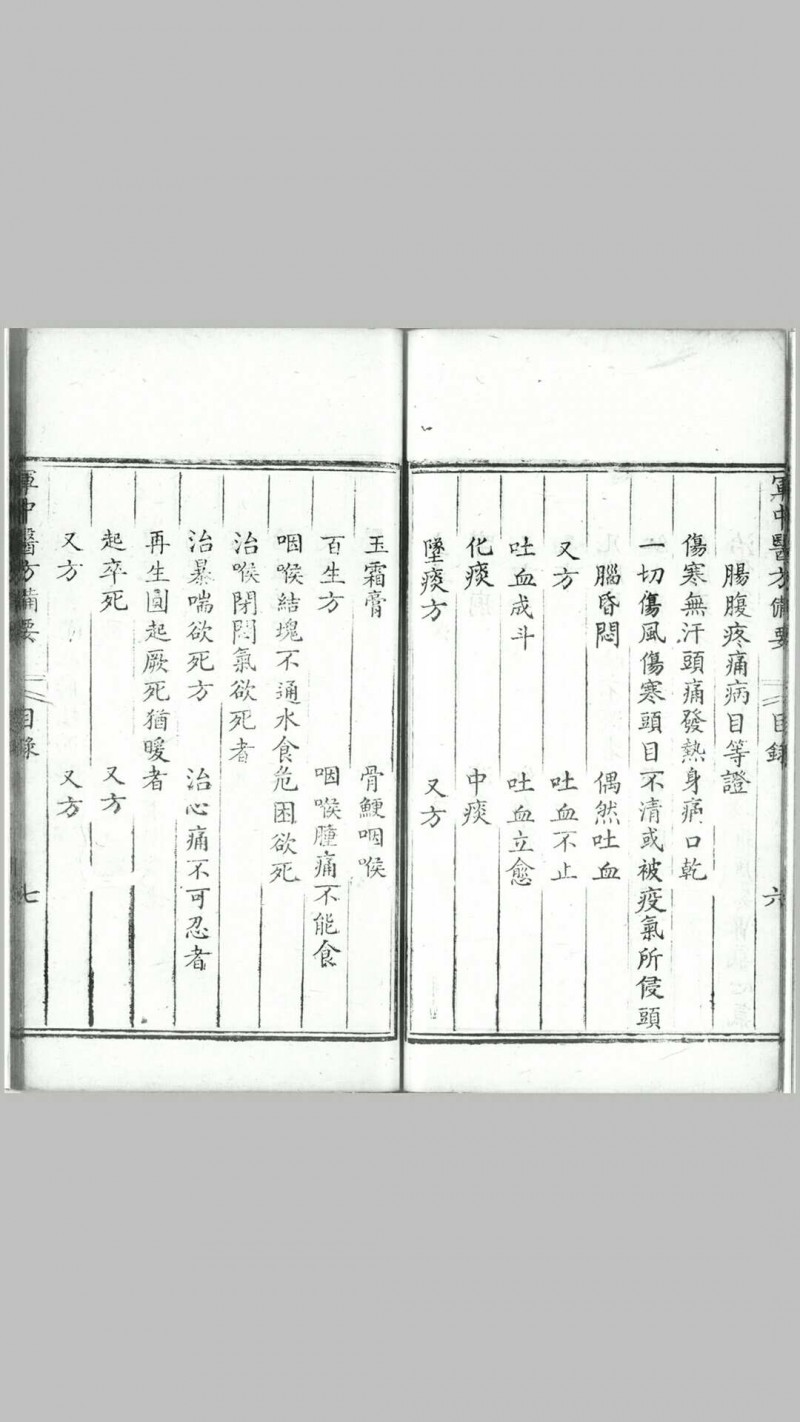 軍中醫方備要 目錄 六
腸腹疼痛病目等證
傷寒無汗頭痛發熱身痛口乾
一切傷風傷寒頭目不清或被疫氣所侵頭
腦昏悶 偶然吐血
又方 吐血不止
吐血成斗 吐血立愈
化痰 中痰
墜痰方 又方
玉霜膏 骨鯁咽喉
百生方 咽喉腫痛不能食
咽喉結塊不通水食危困欲死
治喉閉悶氣欲死者
治暴喘欲死方 治心痛不可忍者
再生圓起厥死猶暖者
起卒死 又方
又方 又方
軍中醫方備要 目錄 七